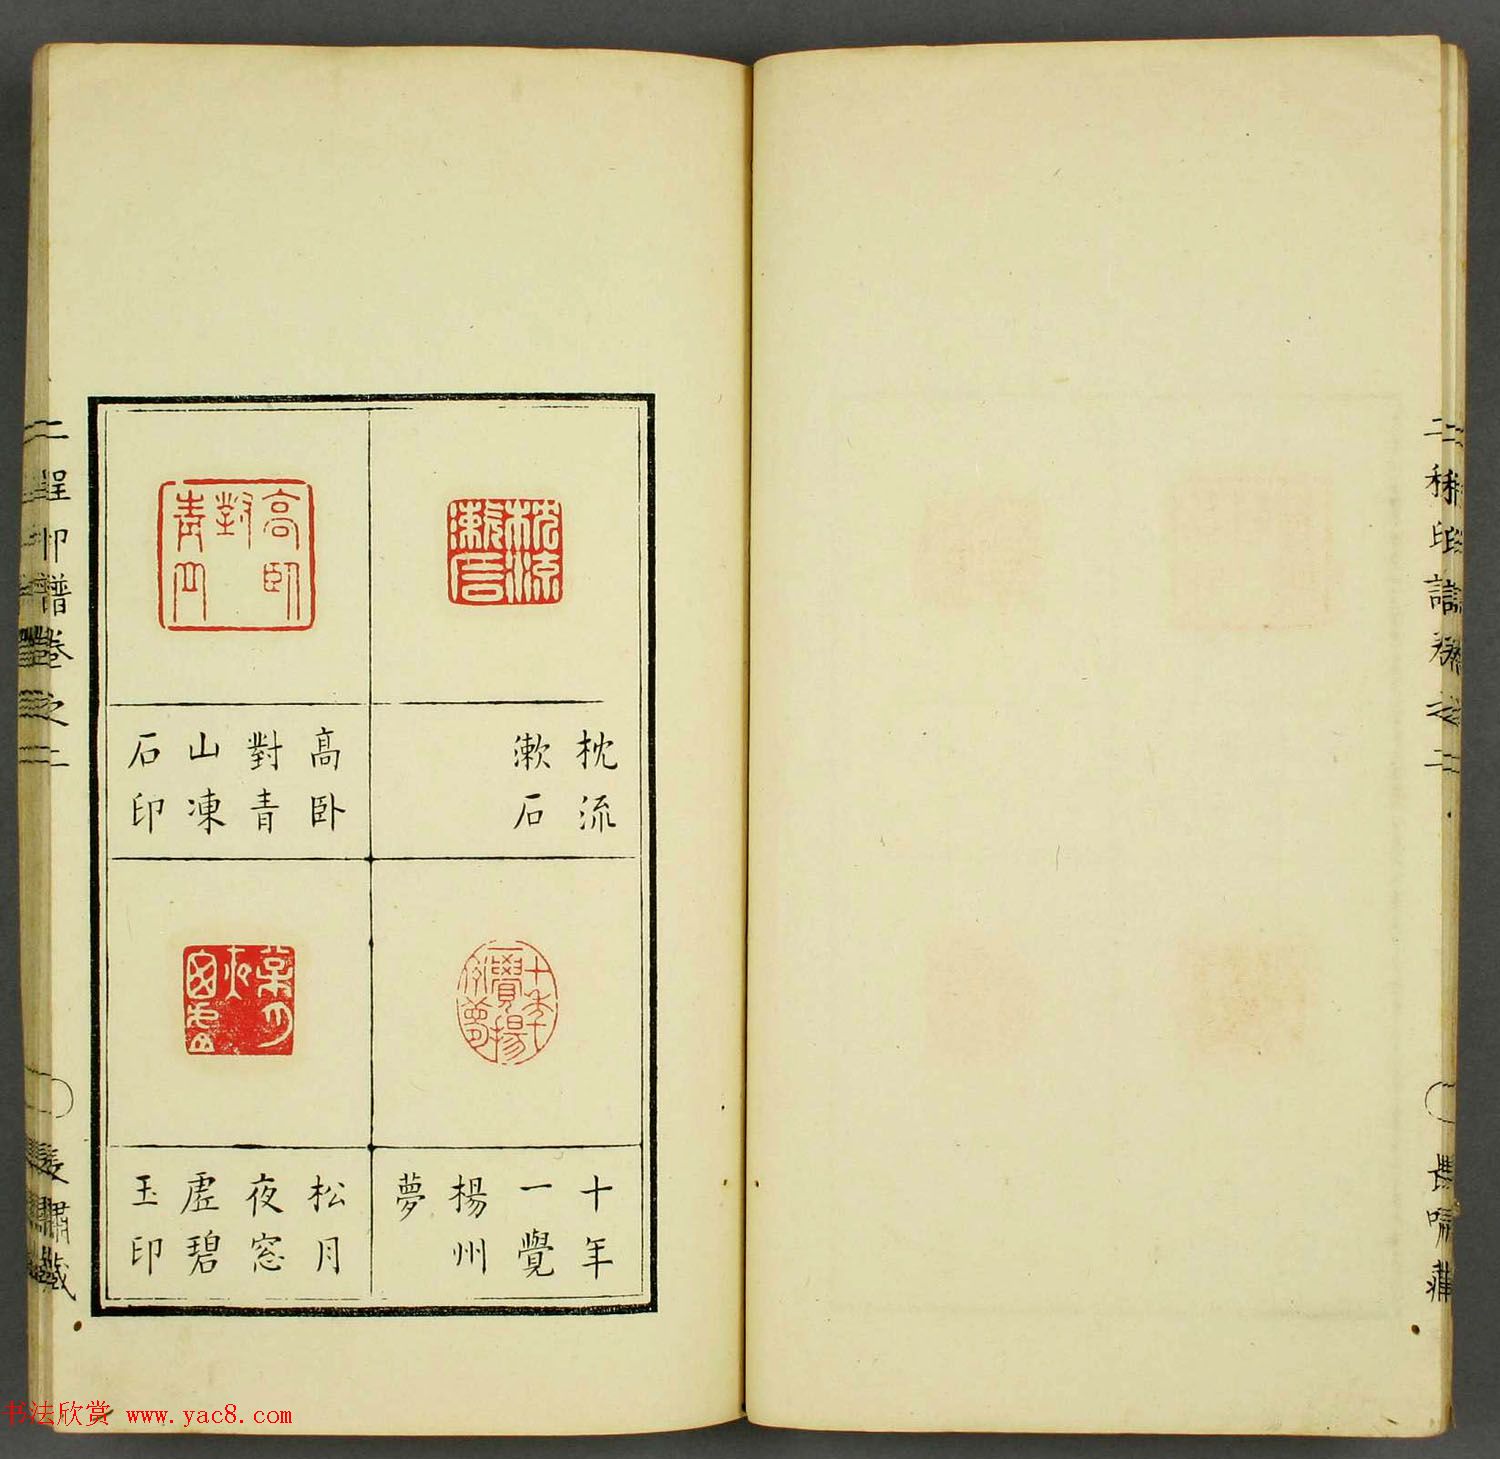 枕流
漱石
高卧
對青
山凍
石印
十年
一覺
楊州
夢
松月
夜窓
虛碧
玉印
枕流漱石
高臥對青山
十年一覺揚州夢
松月夜窗虛
二程印譜卷之二
长啸藏
书法欣赏 www.yac8.com